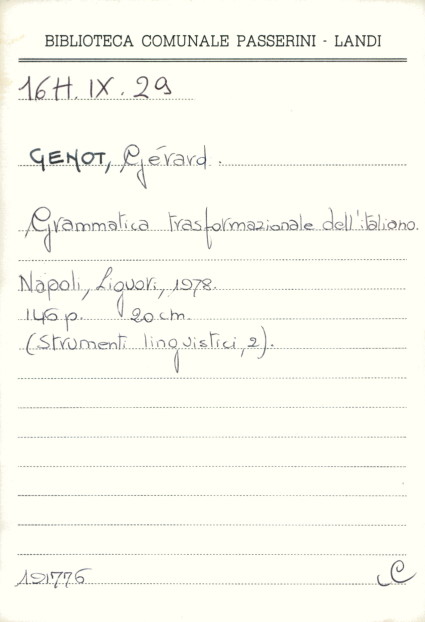 BIBLIOTECA COMUNALE PASSERINI - LANDI
16H. IX. 29
GENOT, Gérard.
Grammatica trasformazionale dell'italiano.
Napoli, Liguori, 1978.
146 p. 20 cm.
(Strumenti linguistici, 2).
191776 C